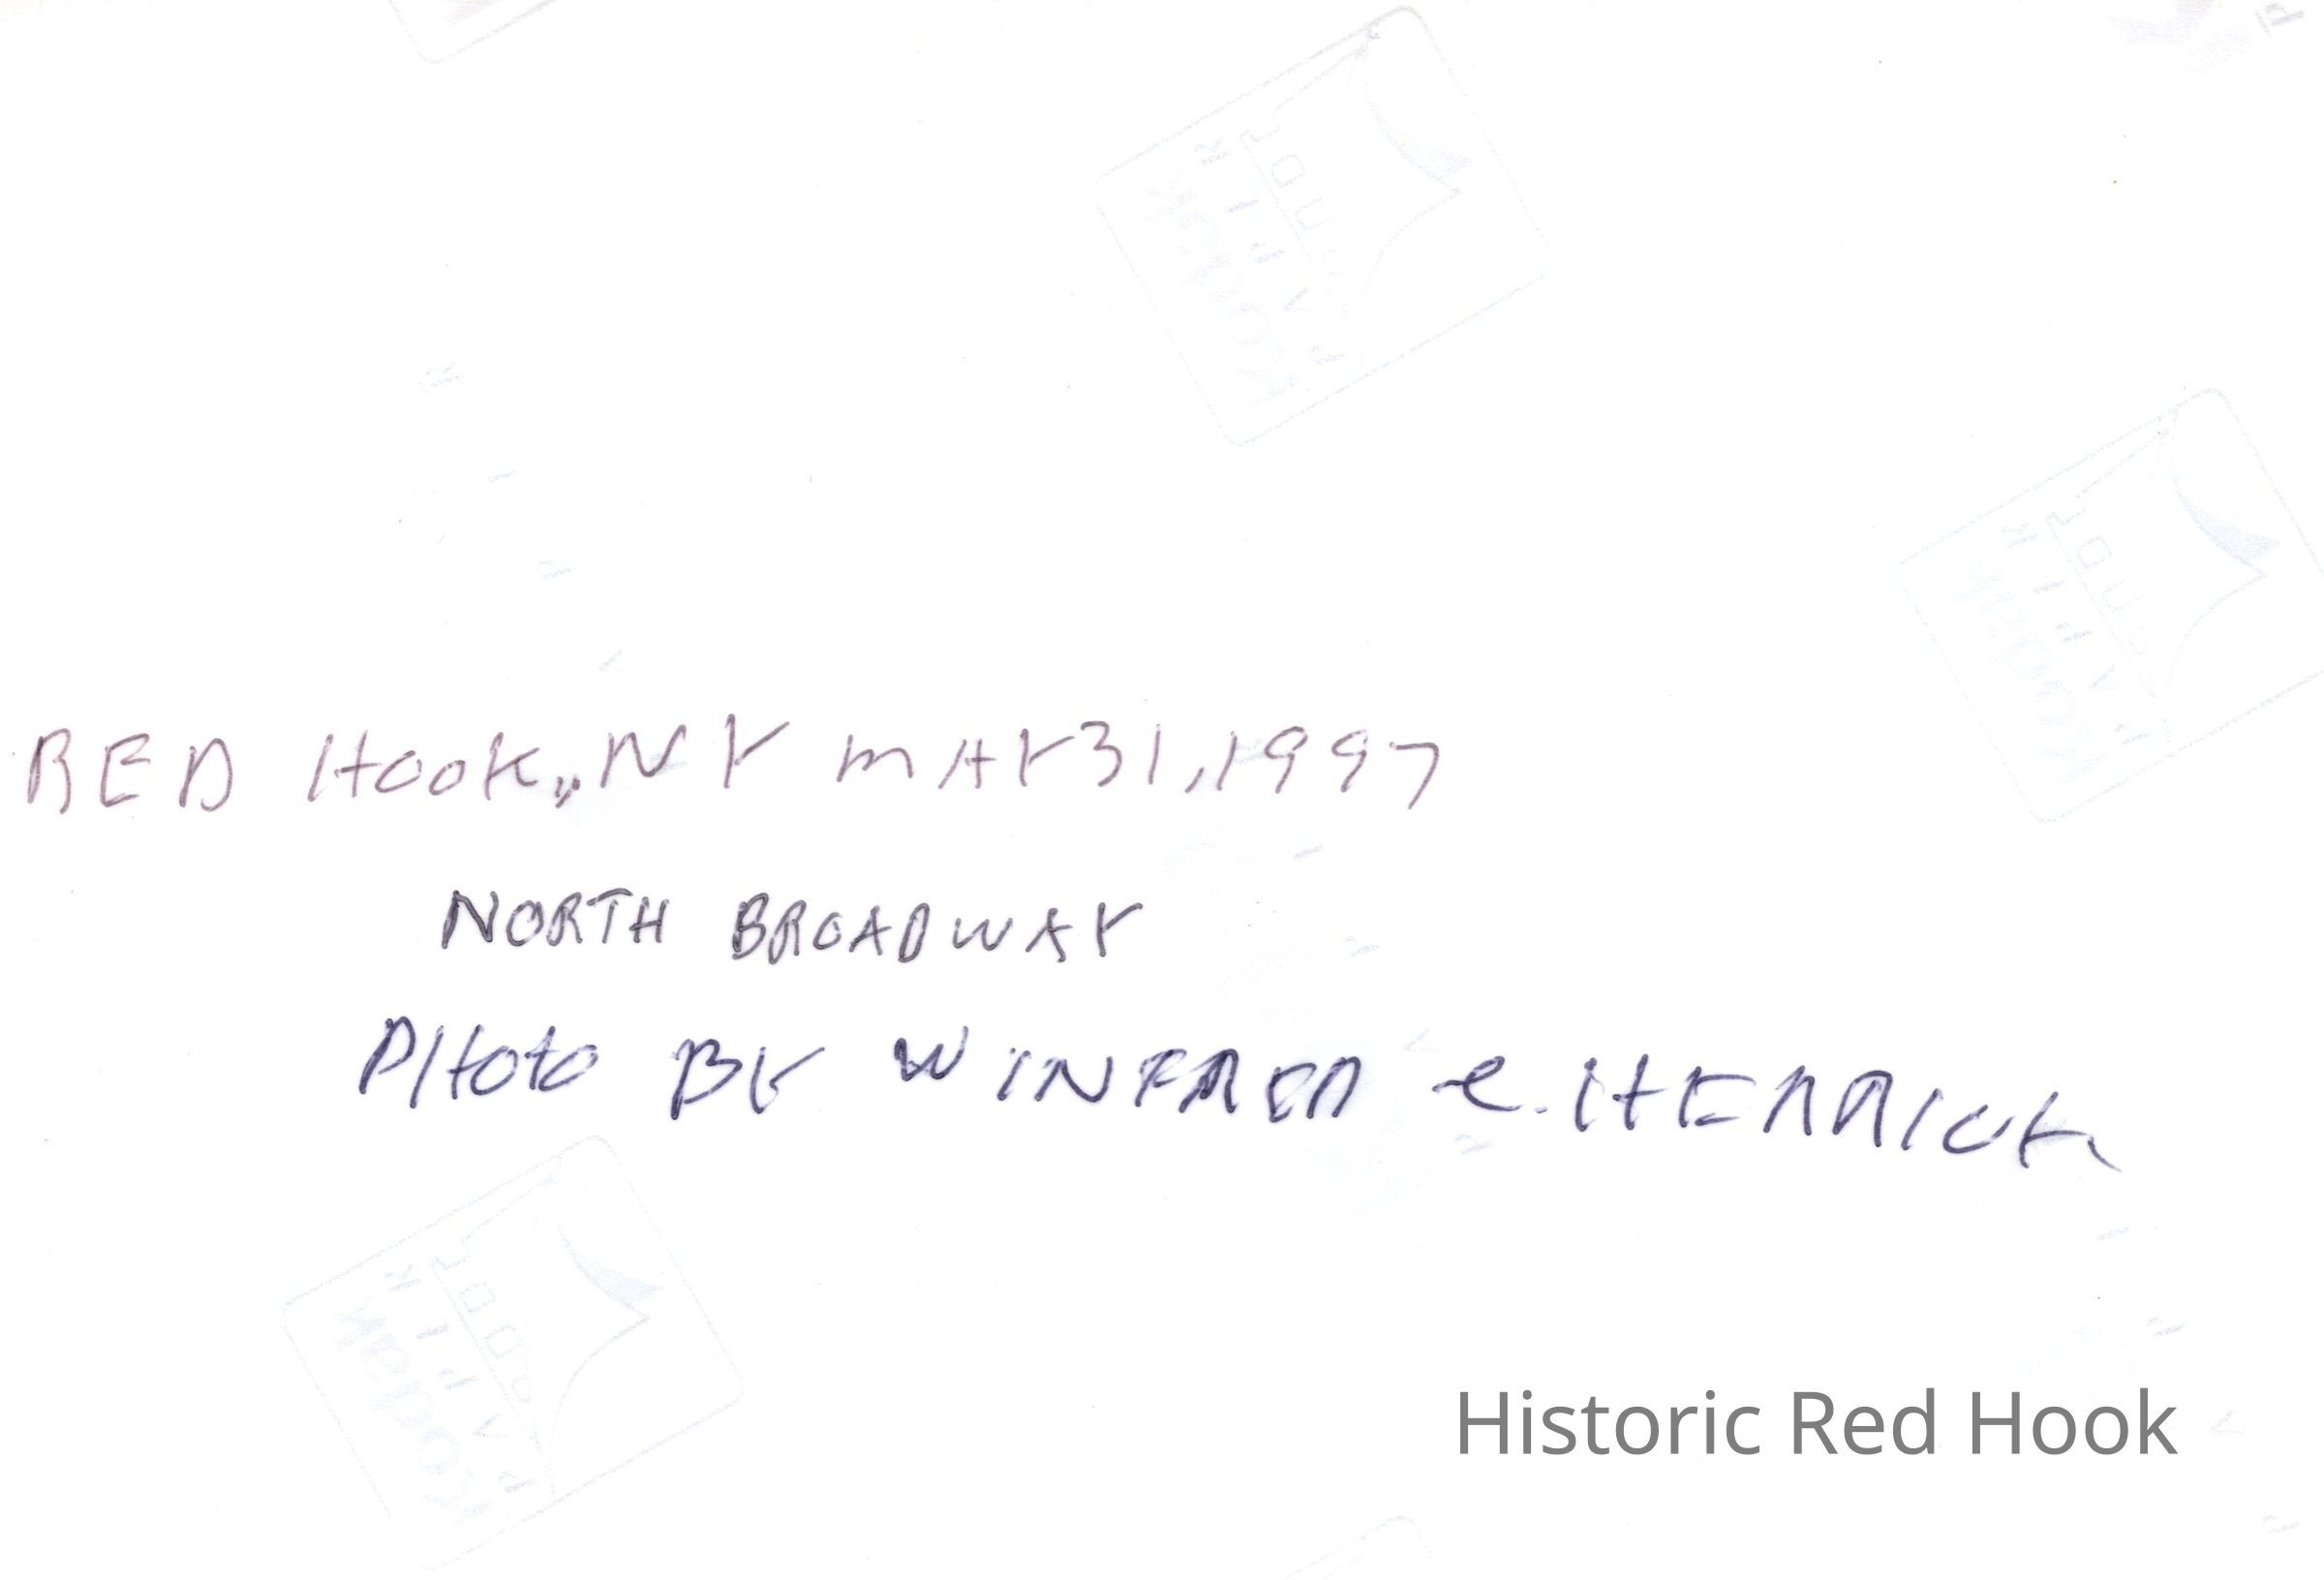 RED HOOK, NY MAY 31, 1997
NORTH BROADWAY
PHOTO BY WINFRED E. HERRICK
Historic Red Hook